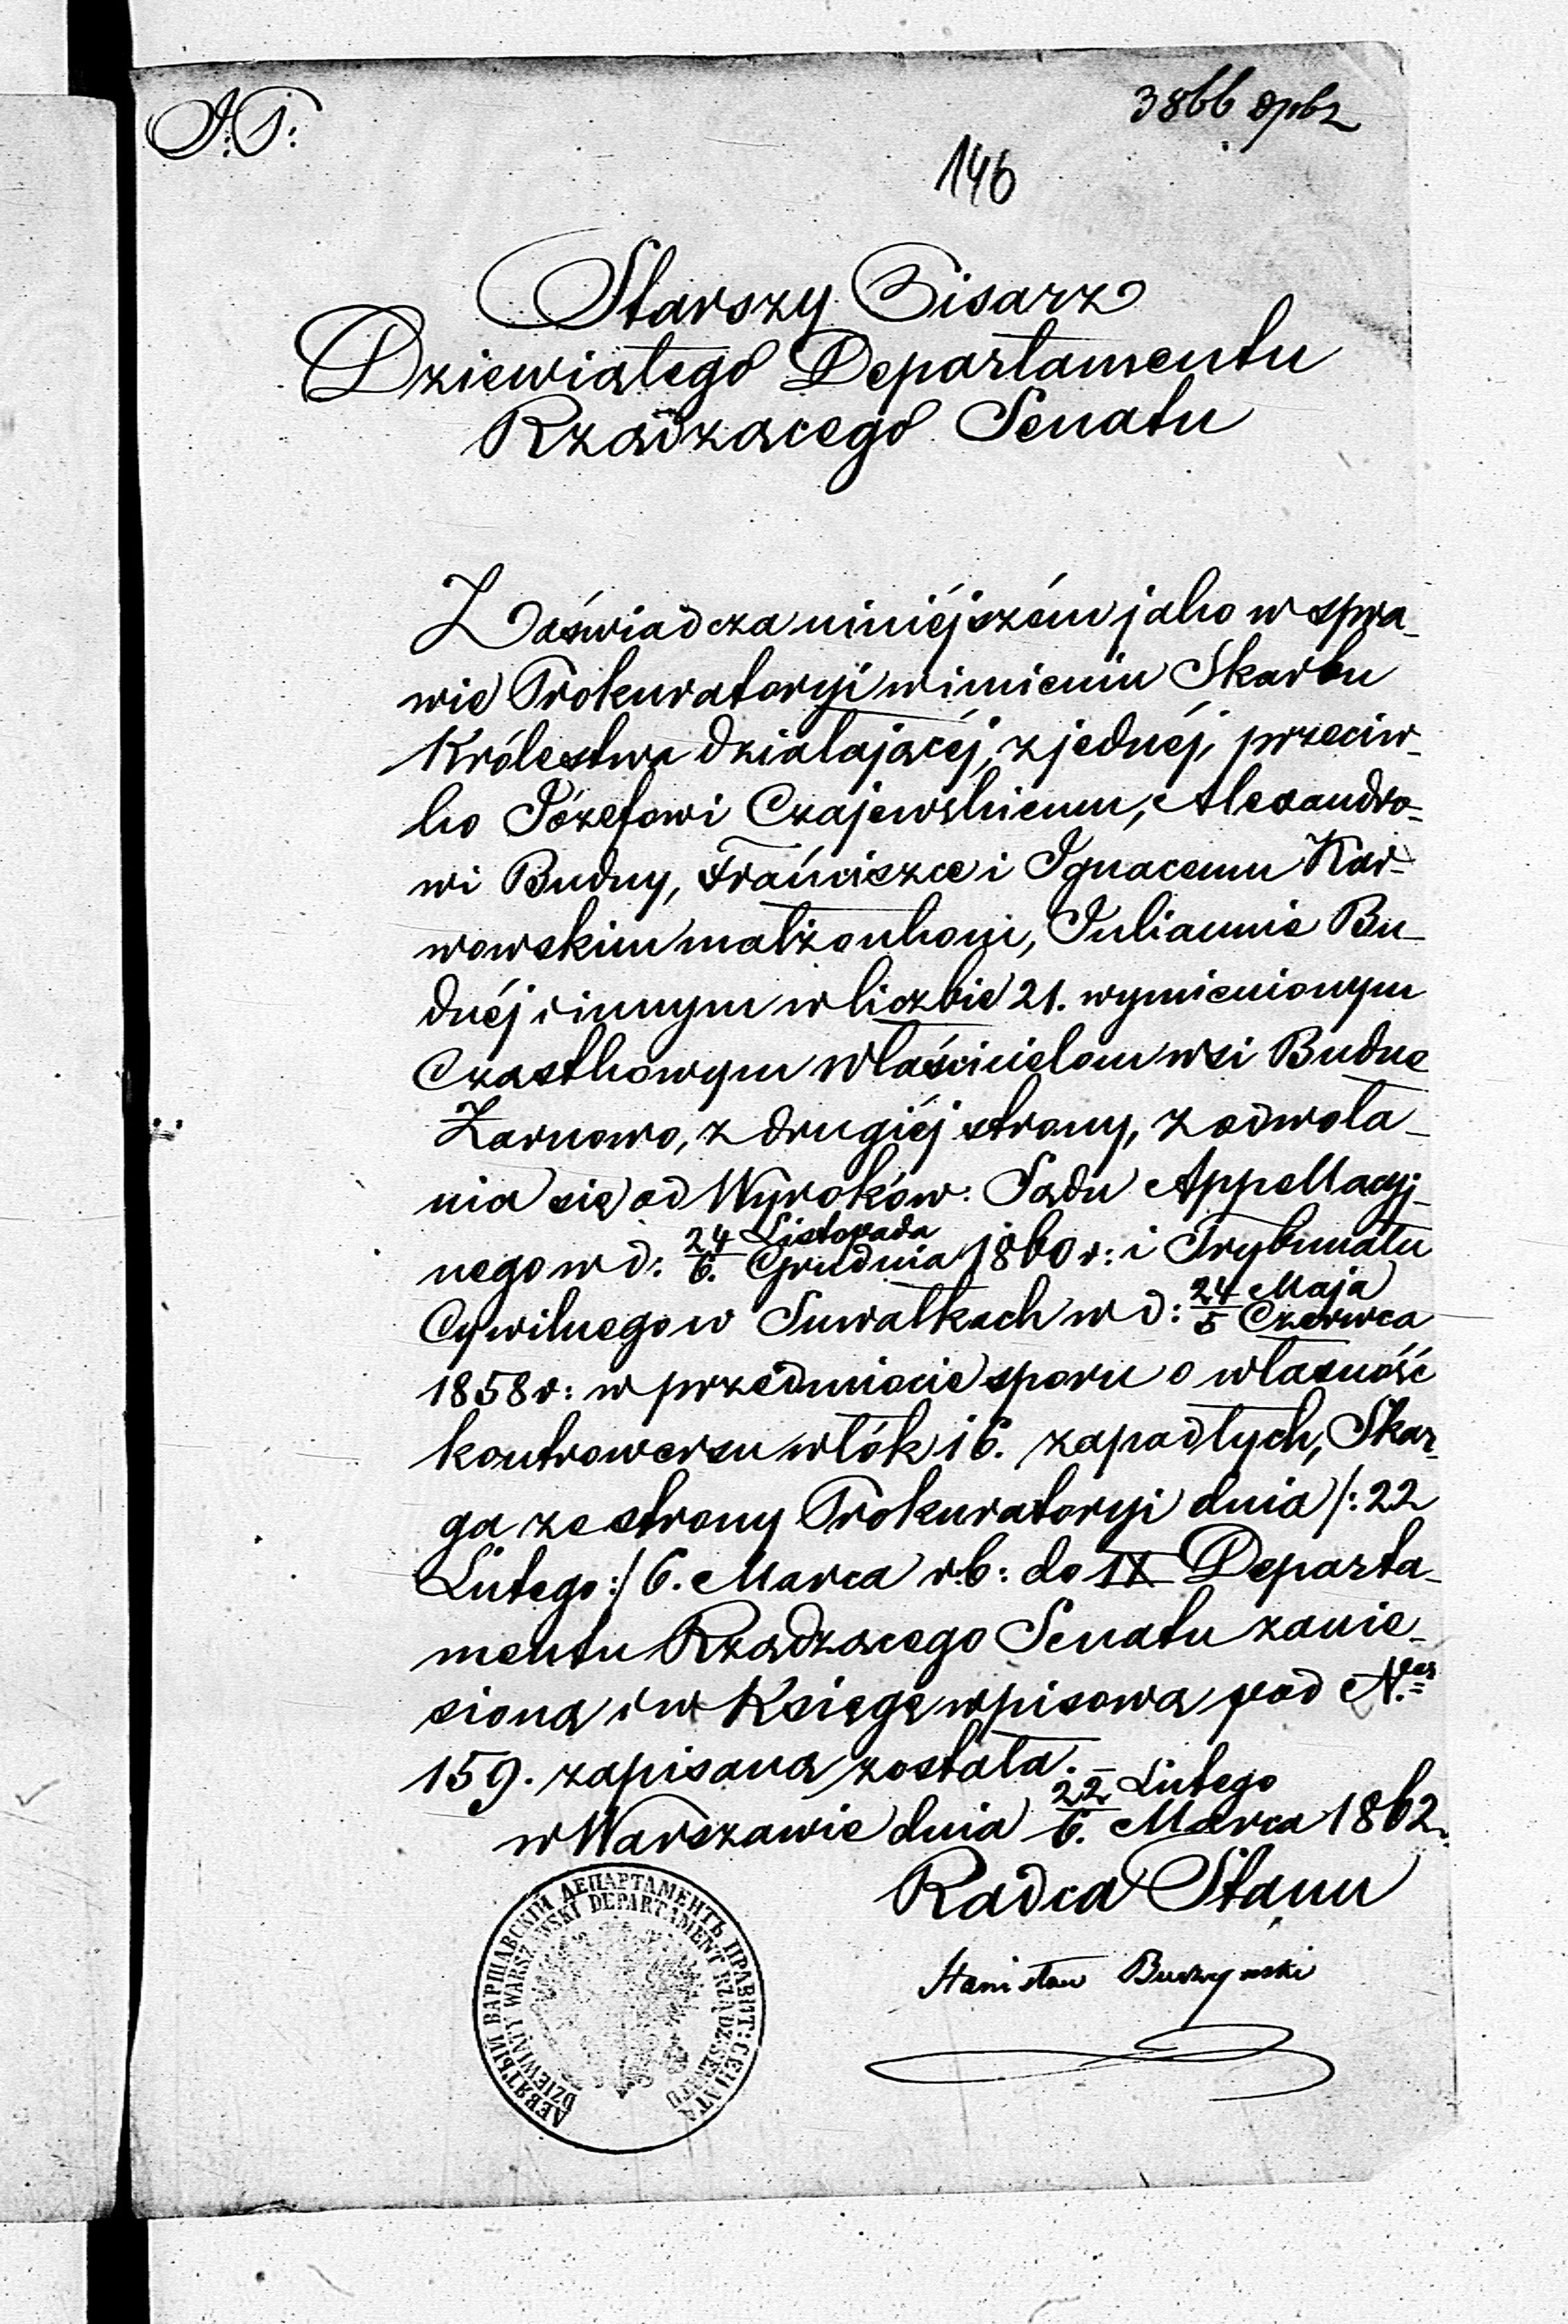 A.S:
146
Starszy Pisarz
Dziewiątego Departamentu
Rządzącego Senatu
Zaświadcza niniéjszém jako w spra-
wie Prokuratoryi w imieniu Skarbu
Królestwa działającéj, z jednéj, przeciw-
ko Józefowi Czajewskiemu, Alexandro-
wi Budny, Franciszce i Ignacemu Kar-
wowskim małżonkom, Juliannie Bu-
dnéj i innym w liczbie 21. wymienionym
Cząstkowym właścicielom wsi Budne
Żarnowo, z drugiéj strony, z odwoła-
nia się od Wyroków: Sądu Appellacyj-
nego w d: 24 Listopada / 6. Grudnia 1860 r: i Trybunału
Cywilnego w Suwałkach w d: 24 Maja / 5 Czerwca
1858 r: w przedmiocie sporu o własność
kontrowersu włók 16. zapadłych, Skar-
ga ze strony Prokuratoryi dnia /: 22
Lutego :/ 6. Marca r.b: do IX Departa-
mentu Rządzącego Senatu zanie-
sioną i w Księgę wpisową pod N.
159. zapisaną została.
w Warszawie dnia 22 Lutego / 6. Marca 1862 r.
Radca Stanu
Stanisław
ДЕВЯТЫЙ ВАРШАВСКІЙ ДЕПАРТАМЕНТЪ ПРАВИТ: СЕНАТА
DZIEWIĄTY WARSZAWSKI DEPARTAMENT RZĄDZ: SENATU